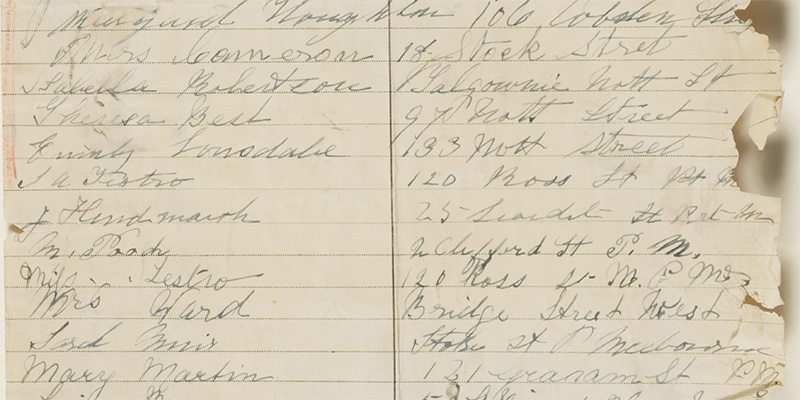 Margaret Houghton 106 Cobden Street
Mrs Cameron 18 Stock Street
Isabella Robertson Balgownie Nott St
Theresa Best 97 Notts Street
Emily Lonsdale 133 Nott Street
J a Testro 120 Ross St Pt M
J Hindmarsh 25 St Port M
M. 2 Clifford St P. M.
Miss Testro 120 Ross St
Mrs Ward Bridge Street West
Muir Stoke st P Melbourne
Mary Martin 131 Graham St P.M.